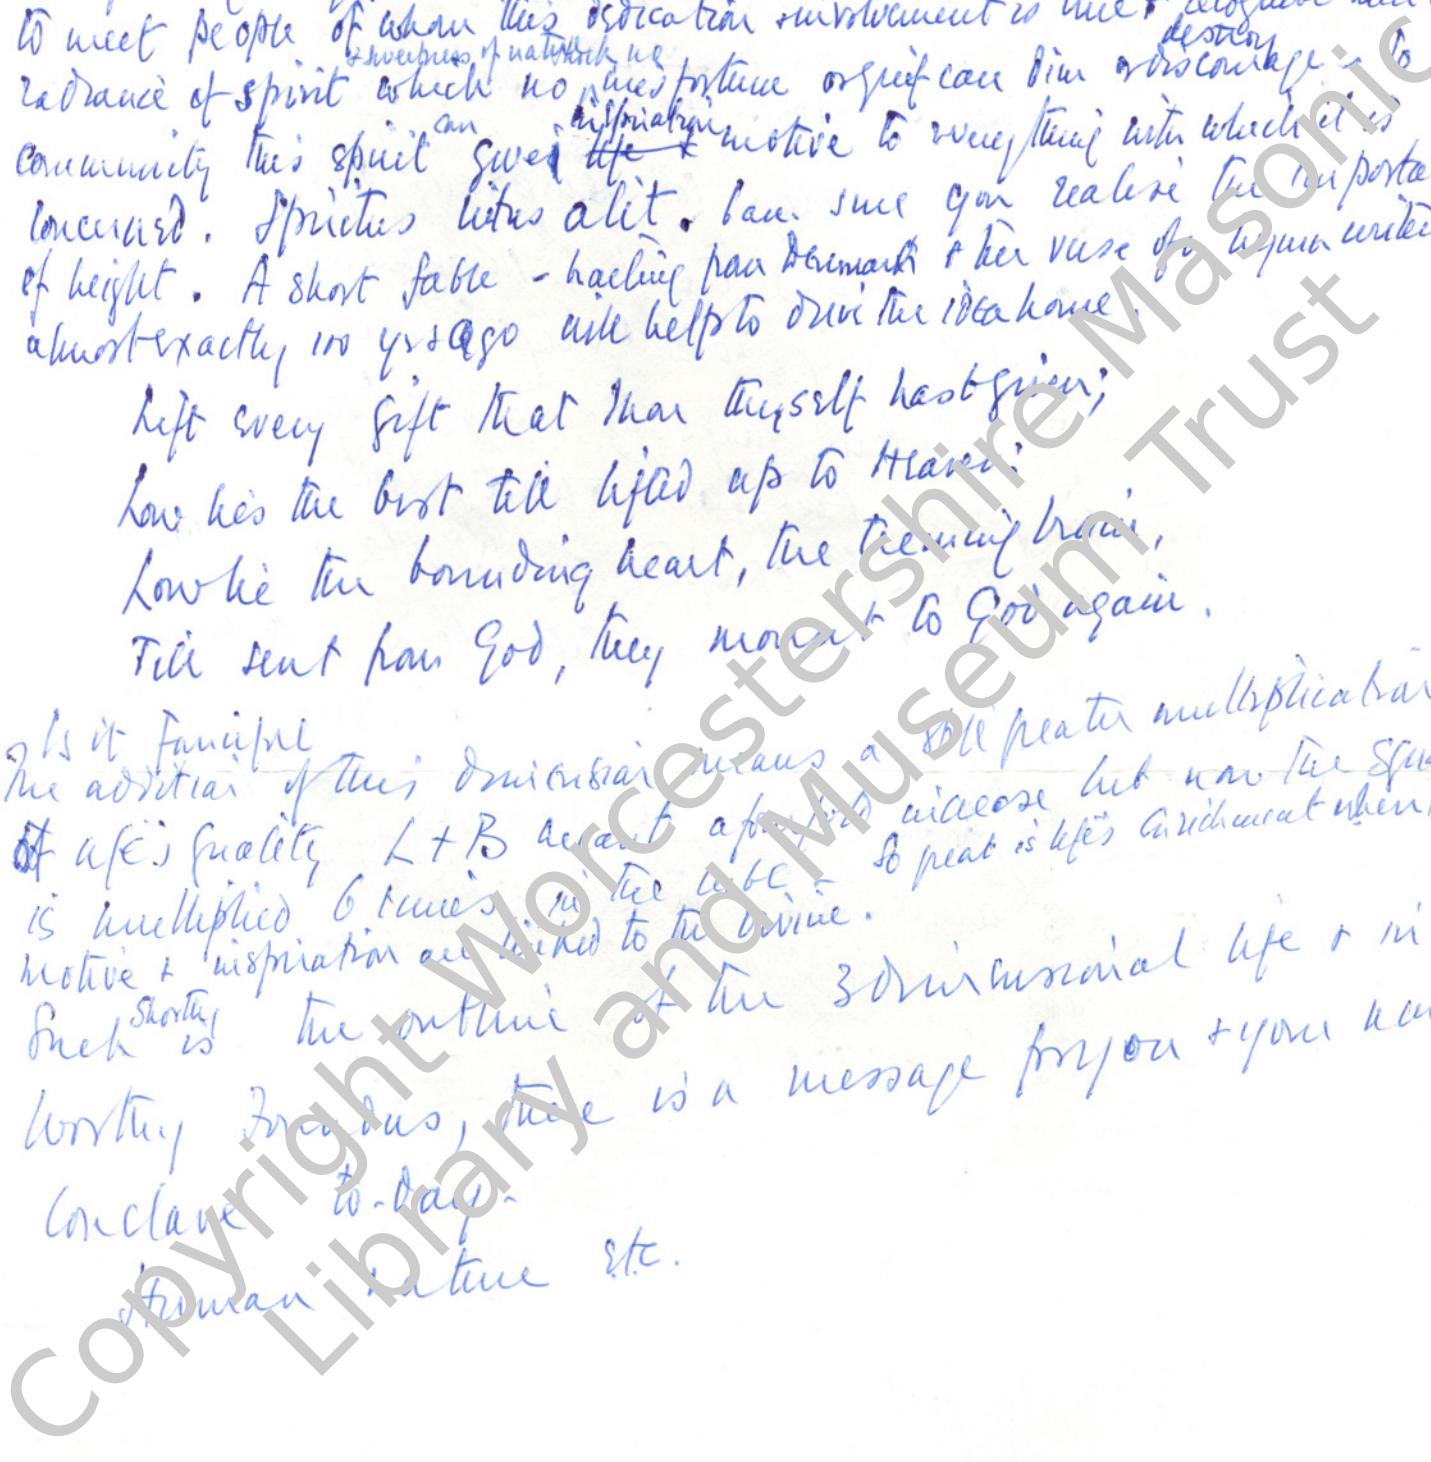 to meet people of whom this dedication & involvement is true &
+ sweetness of nature which no destroy
radiance of spirit which no misfortune or grief can dim or discourage - To
can inspiration
community this spirit gives life & motive to everything with which it is
concerned. Spiritus intus alit. I am sure you realise the importa
of height. A short fable - hailing from Denmark & the verse of a hymn written
almost exactly 100 yrs ago will help to drive the idea home.
Lift every gift that Thou thyself hast given;
Low lies the best till lifted up to Heaven:
Low lie the bounding heart, the teeming brain,
Till sent from God, they mount to God again.
Is it Fanciful
The addition of this dimension means a still greater multiplication
of life's quality L + B meant a fourfold increase but now the squ
is multiplied 6 times in the cube - So great is life's enrichment when
motive & inspiration are linked to the divine.
Shortly
Such is the outline of the 3 dimensional life & in
Worthy Founders, there is a message for you & your new
Conclave to-day -
Human nature etc.
Copyright Worcestershire Masonic
Library and Museum Trust